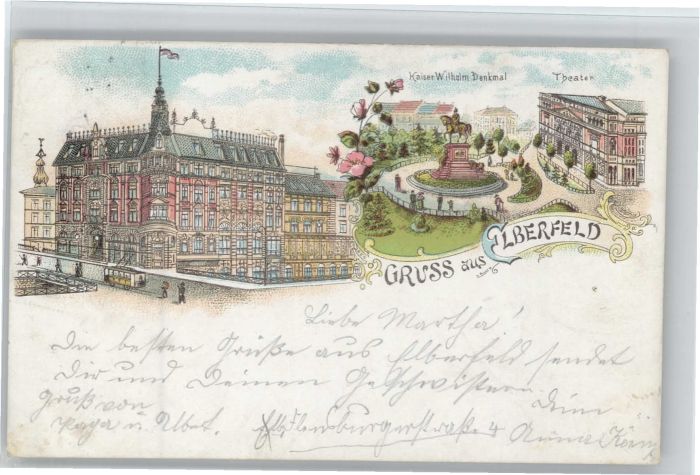 Kaiser Wilhelm Denkmal
Theater
GRUSS aus ELBERFELD
Liebe Martha!
Die besten Grüße aus Elberfeld sendet
Dir und Deinen Geschwistern Deine
Gruß von
Papa u. Elbf. Flensburgerstraße 4 Anna